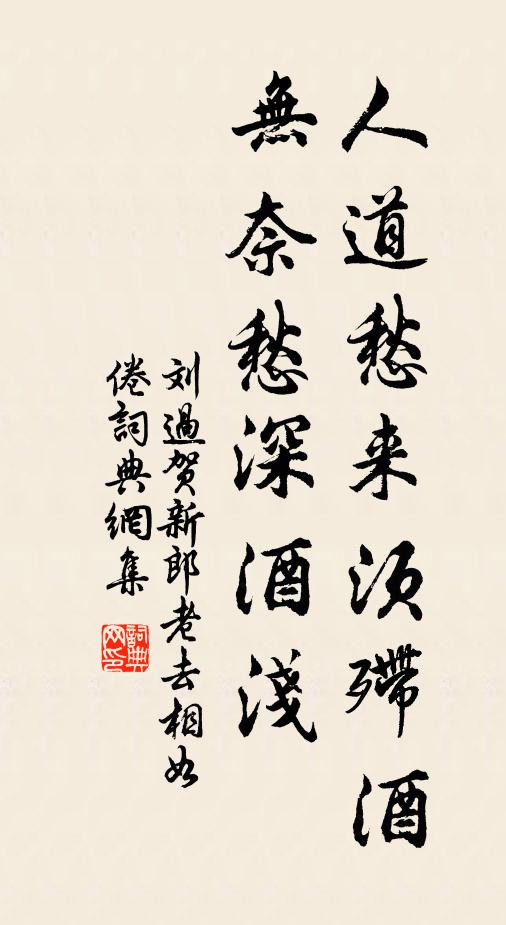 人道愁来須殢酒
無奈愁深酒淺
刘過贺新郎老去相如
倦詞典網集
詞典网印